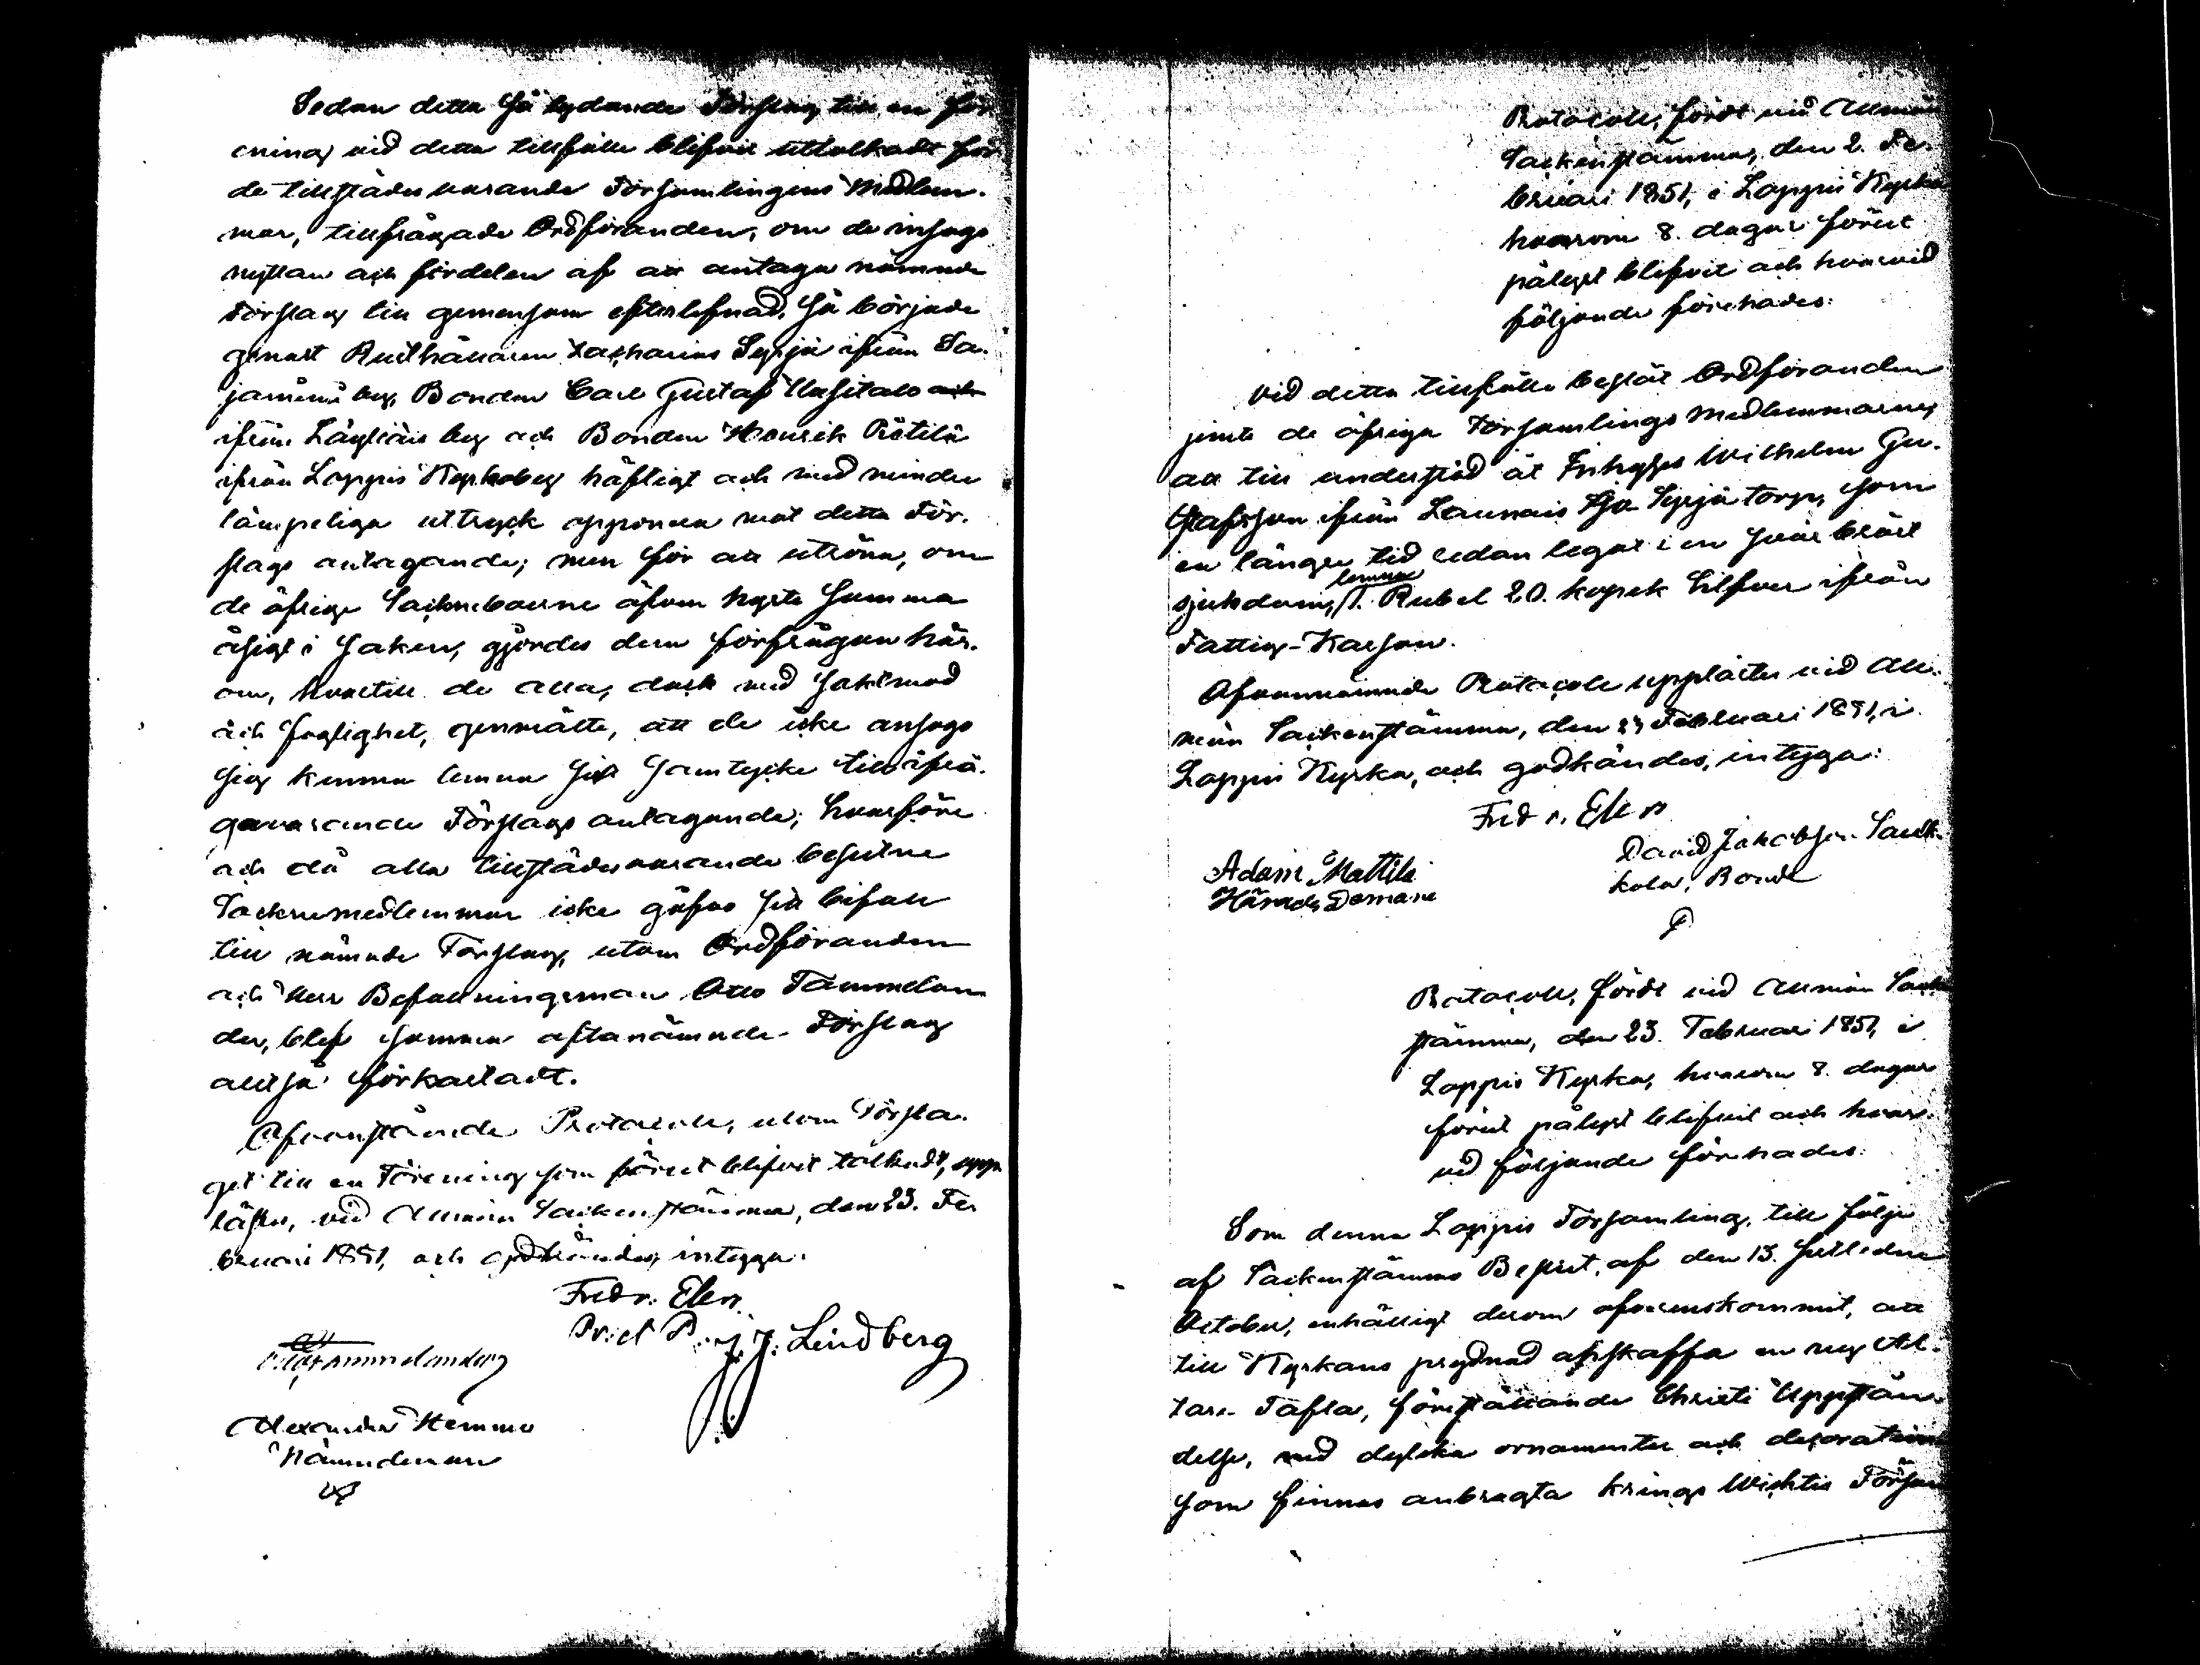 Sedan detta så lydande Förslag till en för
ening vid detta tillfälle blifvit uttolkadt för
de tillstädesvarande Församlingens Medlem-
mar, tillfrågade Ordföranden, om de insågo
nyttan och fördelen af att antaga nämnde
Förslag till gemensam efterlefnad, så började
genast Rusthållaren Zacharias Syrjä ifrån Sa-
janiemi by, Bonden Carl Gustaf Uusitalo
ifrån Läyliäis by och Bonden Henrik Pötilä
ifrån Loppis Kyrkoby häftigt och med mindre
lämpeliga uttryck opponera mot detta För-
slags antagande; men för att utröna, om
de öfrige Sockneboerne äfven hyste samma
åsigt i saken, gjordes dem förfrågan här-
om, hvartill de alla, dock med saktmod
och foglighet, genmälte, att de icke ansågo
sig kunna lemna sitt samtycke till ifrå-
gavarande Förslags antagande; hvarföre
och då alla tillstädesvarande besutne
Socknemedlemmar icke gåfvo sitt bifall
till nämnde Förslag, utom Ordföranden
och Herr Befallningsman Otto Tammelan
der, blef samma oftanämnde Förslag
alltså förkastadt.
Ofvanstående Protocoll, utom Försla-
get till en Förening som förut blifvit tolkadt, upp
lästes, vid Allmän Sockenstämma, den 23. Fe
bruari 1851, och godkändes, intyga.
Fredr. Elers
Prict P. J. J. Lindberg
Otto Tammelander
Alexander Hemmo
Nämndeman
Protocoll, fördt vid Allmän
Sockenstämma, den 2. Fe-
bruari 1851, i Loppis Kyrka
hvarom 8. dagar förut
pålyst blifvit och hvarvid
följande förehades:
Vid detta tillfälle beslöt Ordföranden
jemte de öfriga Församlings Medlemmarne,
att till understöd åt Inhyses Wilhelm Gu-
stafsson ifrån Launais Syrjä torp, som
en längre tid redan legat i en svår
sjukdom, lemna 1. Rubel 20. kopek Silfver ifrån
Fattig-Kassan.
Ofvannämnde Protocoll upplästes vid All-
män Sockenstämma, den 23 Februari 1851, i
Loppis Kyrka, och godkändes, intyga:
Fredr. Elers
Adam Mattila
Härads Domare
David Jakobsson Sauk-
kola, Bonde
Protocoll, fördt vid Allmän Socken
stämma, den 23. Februari 1851, i
Loppis Kyrka, hvarom 8. dagar
förut pålyst blifvit och hvar-
vid följande förehades:
Som denna Loppis Församling, till följe
af Sockenstämmo Beslut, af den 13. sistledne
October, enhälligt derom öfverenskommit, att
till Kyrkans prydnad anskaffa en ny Al-
tare-Tafla, föreställande Christi Uppstån
delse, med dylika ornamenter och decorationer
som finnas anbragta krings Wichtis Försam